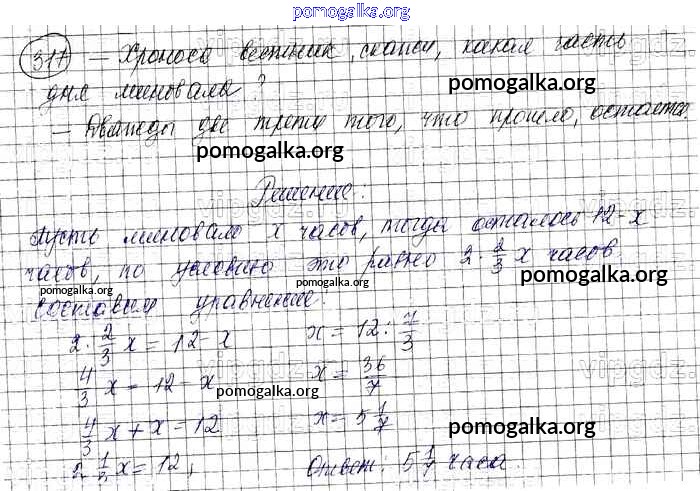 pomogalka.org
317 – Хроноса вестник, скажи, какая часть
pomogalka.org
дня миновала?
– Дважды две трети того, что прошло, остается.
pomogalka.org
Решение:
Пусть миновало x часов, тогда осталось 12-x
часов, по условию это равно 2·2/3 x часов.
pomogalka.org
pomogalka.org
Составим уравнение:
2·2/3 x = 12-x
4/3 x = 12-x
4/3 x + x = 12
2 1/3 x = 12;
x = 12 : 7/3
x = 36/7
x = 5 1/7
Ответ: 5 1/7 часа.
pomogalka.org
pomogalka.org
vipgdz